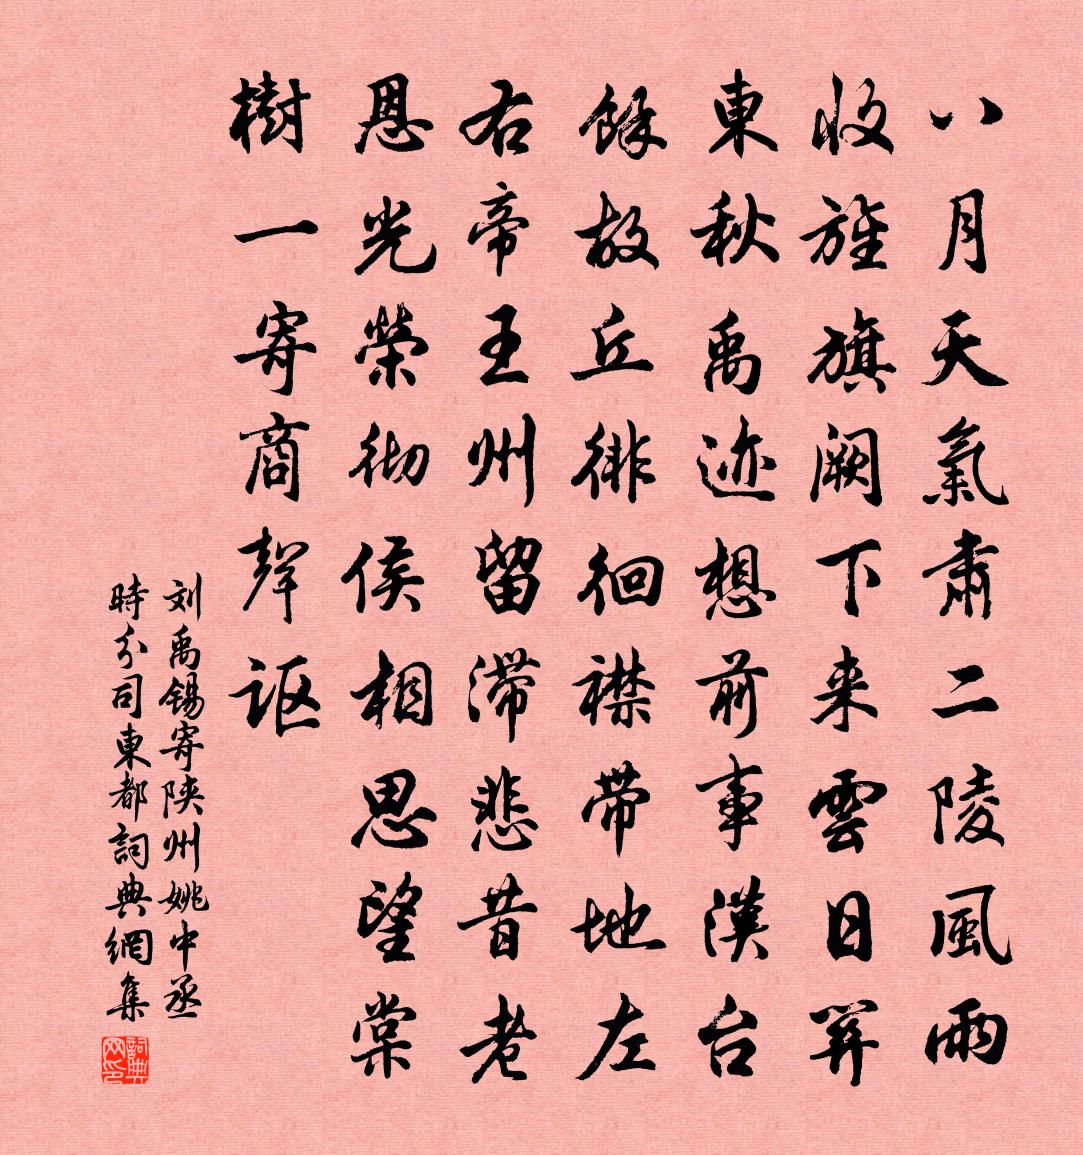 八月天氣肅二陵風雨
收旌旗闕下来雲日关
東秋禹迹想前事漢台
餘故丘徘徊襟带地左
右帝王州留滞悲昔老
恩光榮彻侯相思望棠
樹一寄商聲讴
刘禹锡寄陕州姚中丞
時分司東都詞典網集
詞典网印